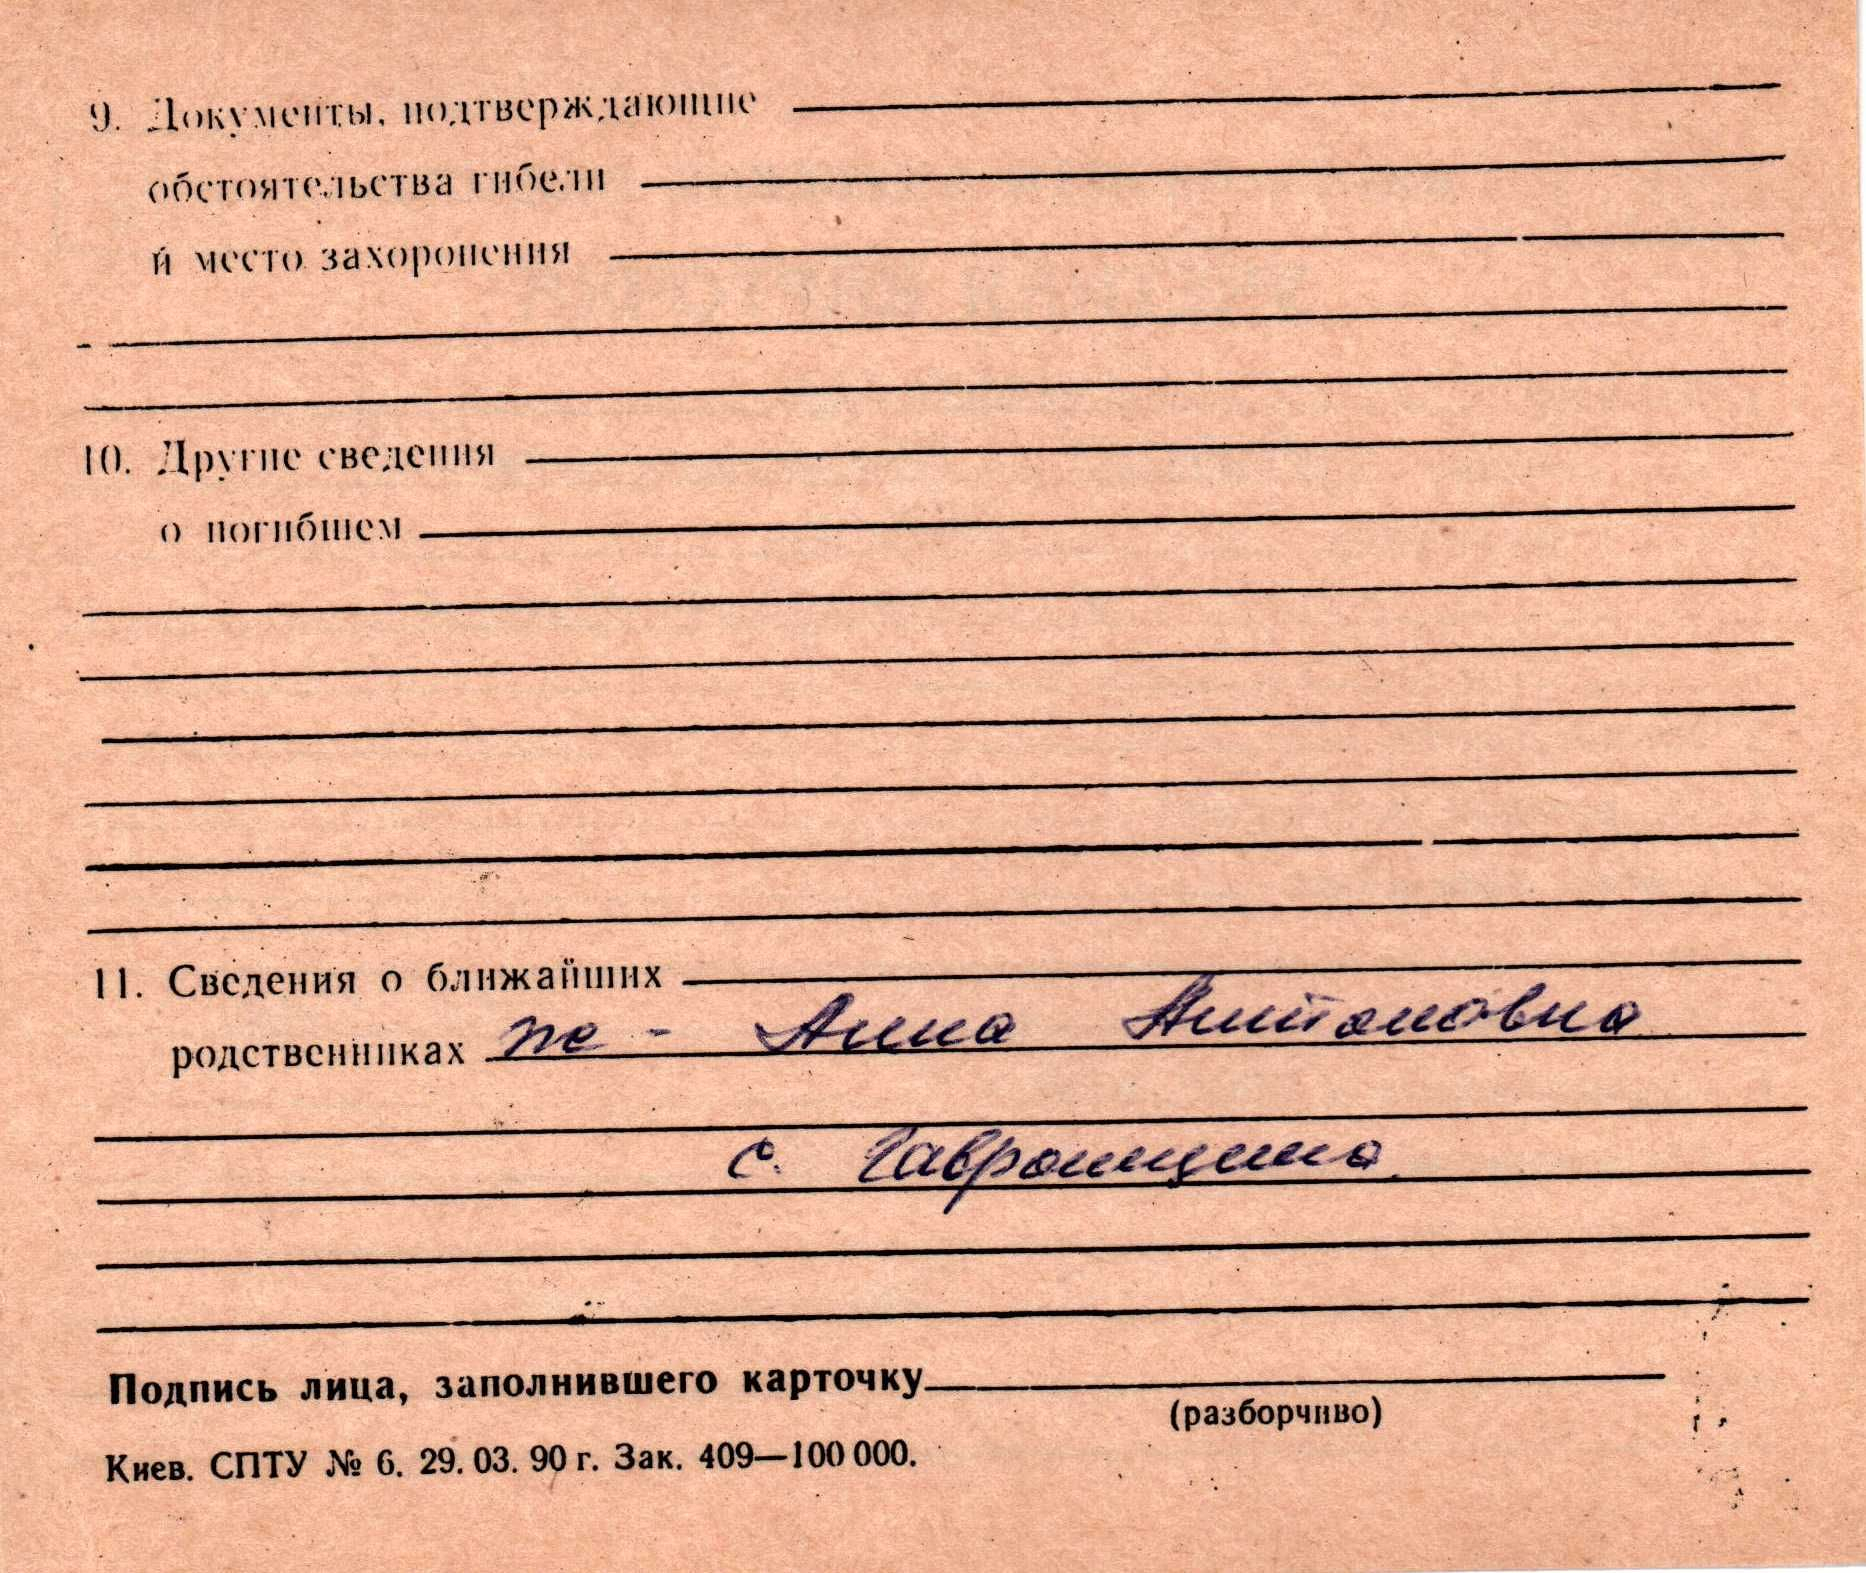 9. Документы, подтверждающие
обстоятельства гибели
и место захоронения
10. Другие сведения
о погибшем
11. Сведения о ближайших
родственниках же - Анна Антоновна
с. Гавронщина
Подпись лица, заполнившего карточку
(разборчиво)
Киев. СПТУ № 6. 29. 03. 90 г. Зак. 409—100 000.